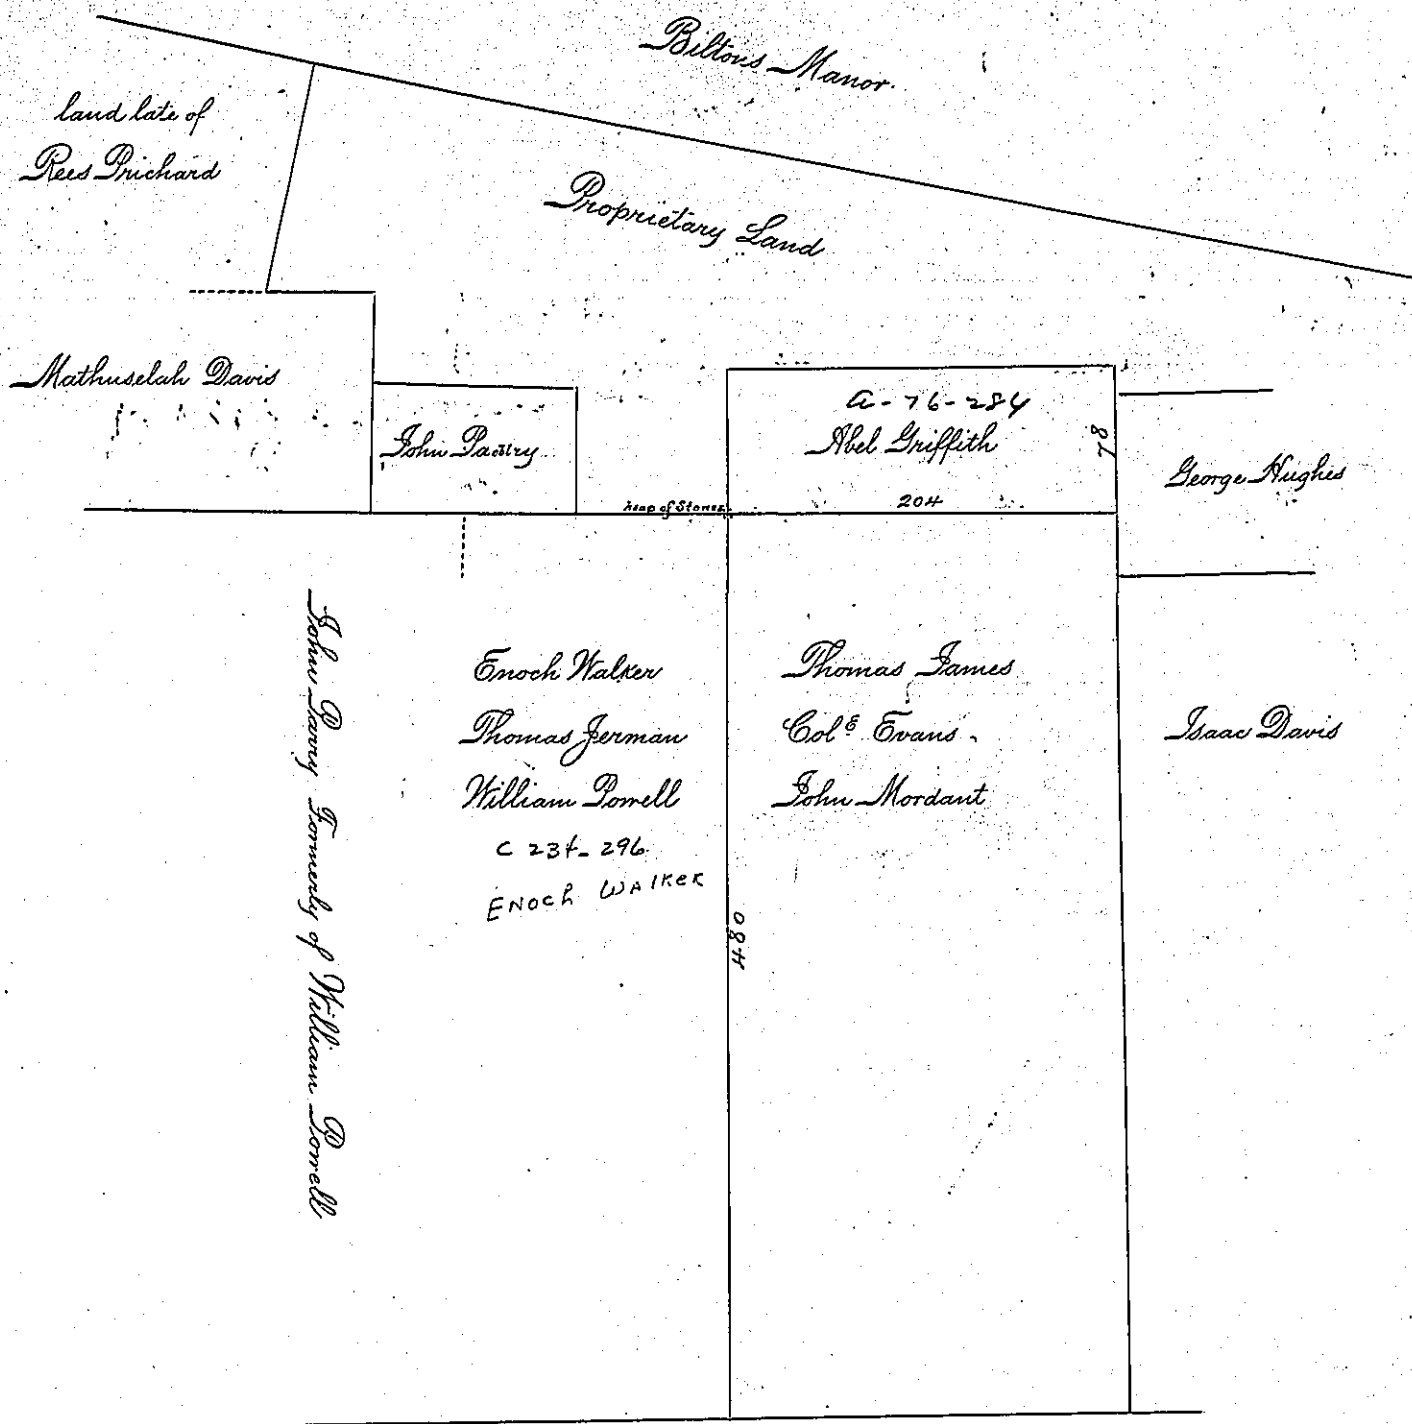 Biltons Manor.
land late of
Rees Prichard
Proprietary Land
Mathuselah Davis
John Parry
a-76-284
Abel Griffith
78
204
George Hughes
heap of Stones
John Parry Formerly of William Powell
Enoch Walker
Thomas Jerman
William Powell
C 234-296
ENOCh WAlKER
Thomas James
Evans
John Mordant
Isaac Davis
480